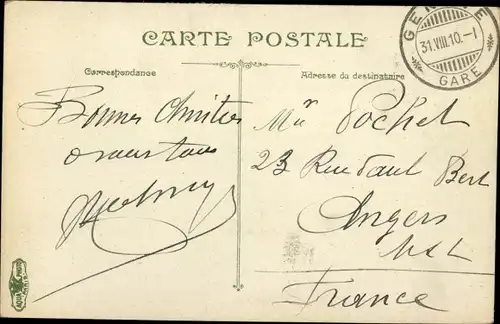 CARTE POSTALE
Correspondance
Adresse du destinataire
GENÈVE
31.VIII.10.-1
GARE
Bonnes Amitiés
à vous tous
Mr Pochet
23 Rue Paul Bert
Angers
M & L
France